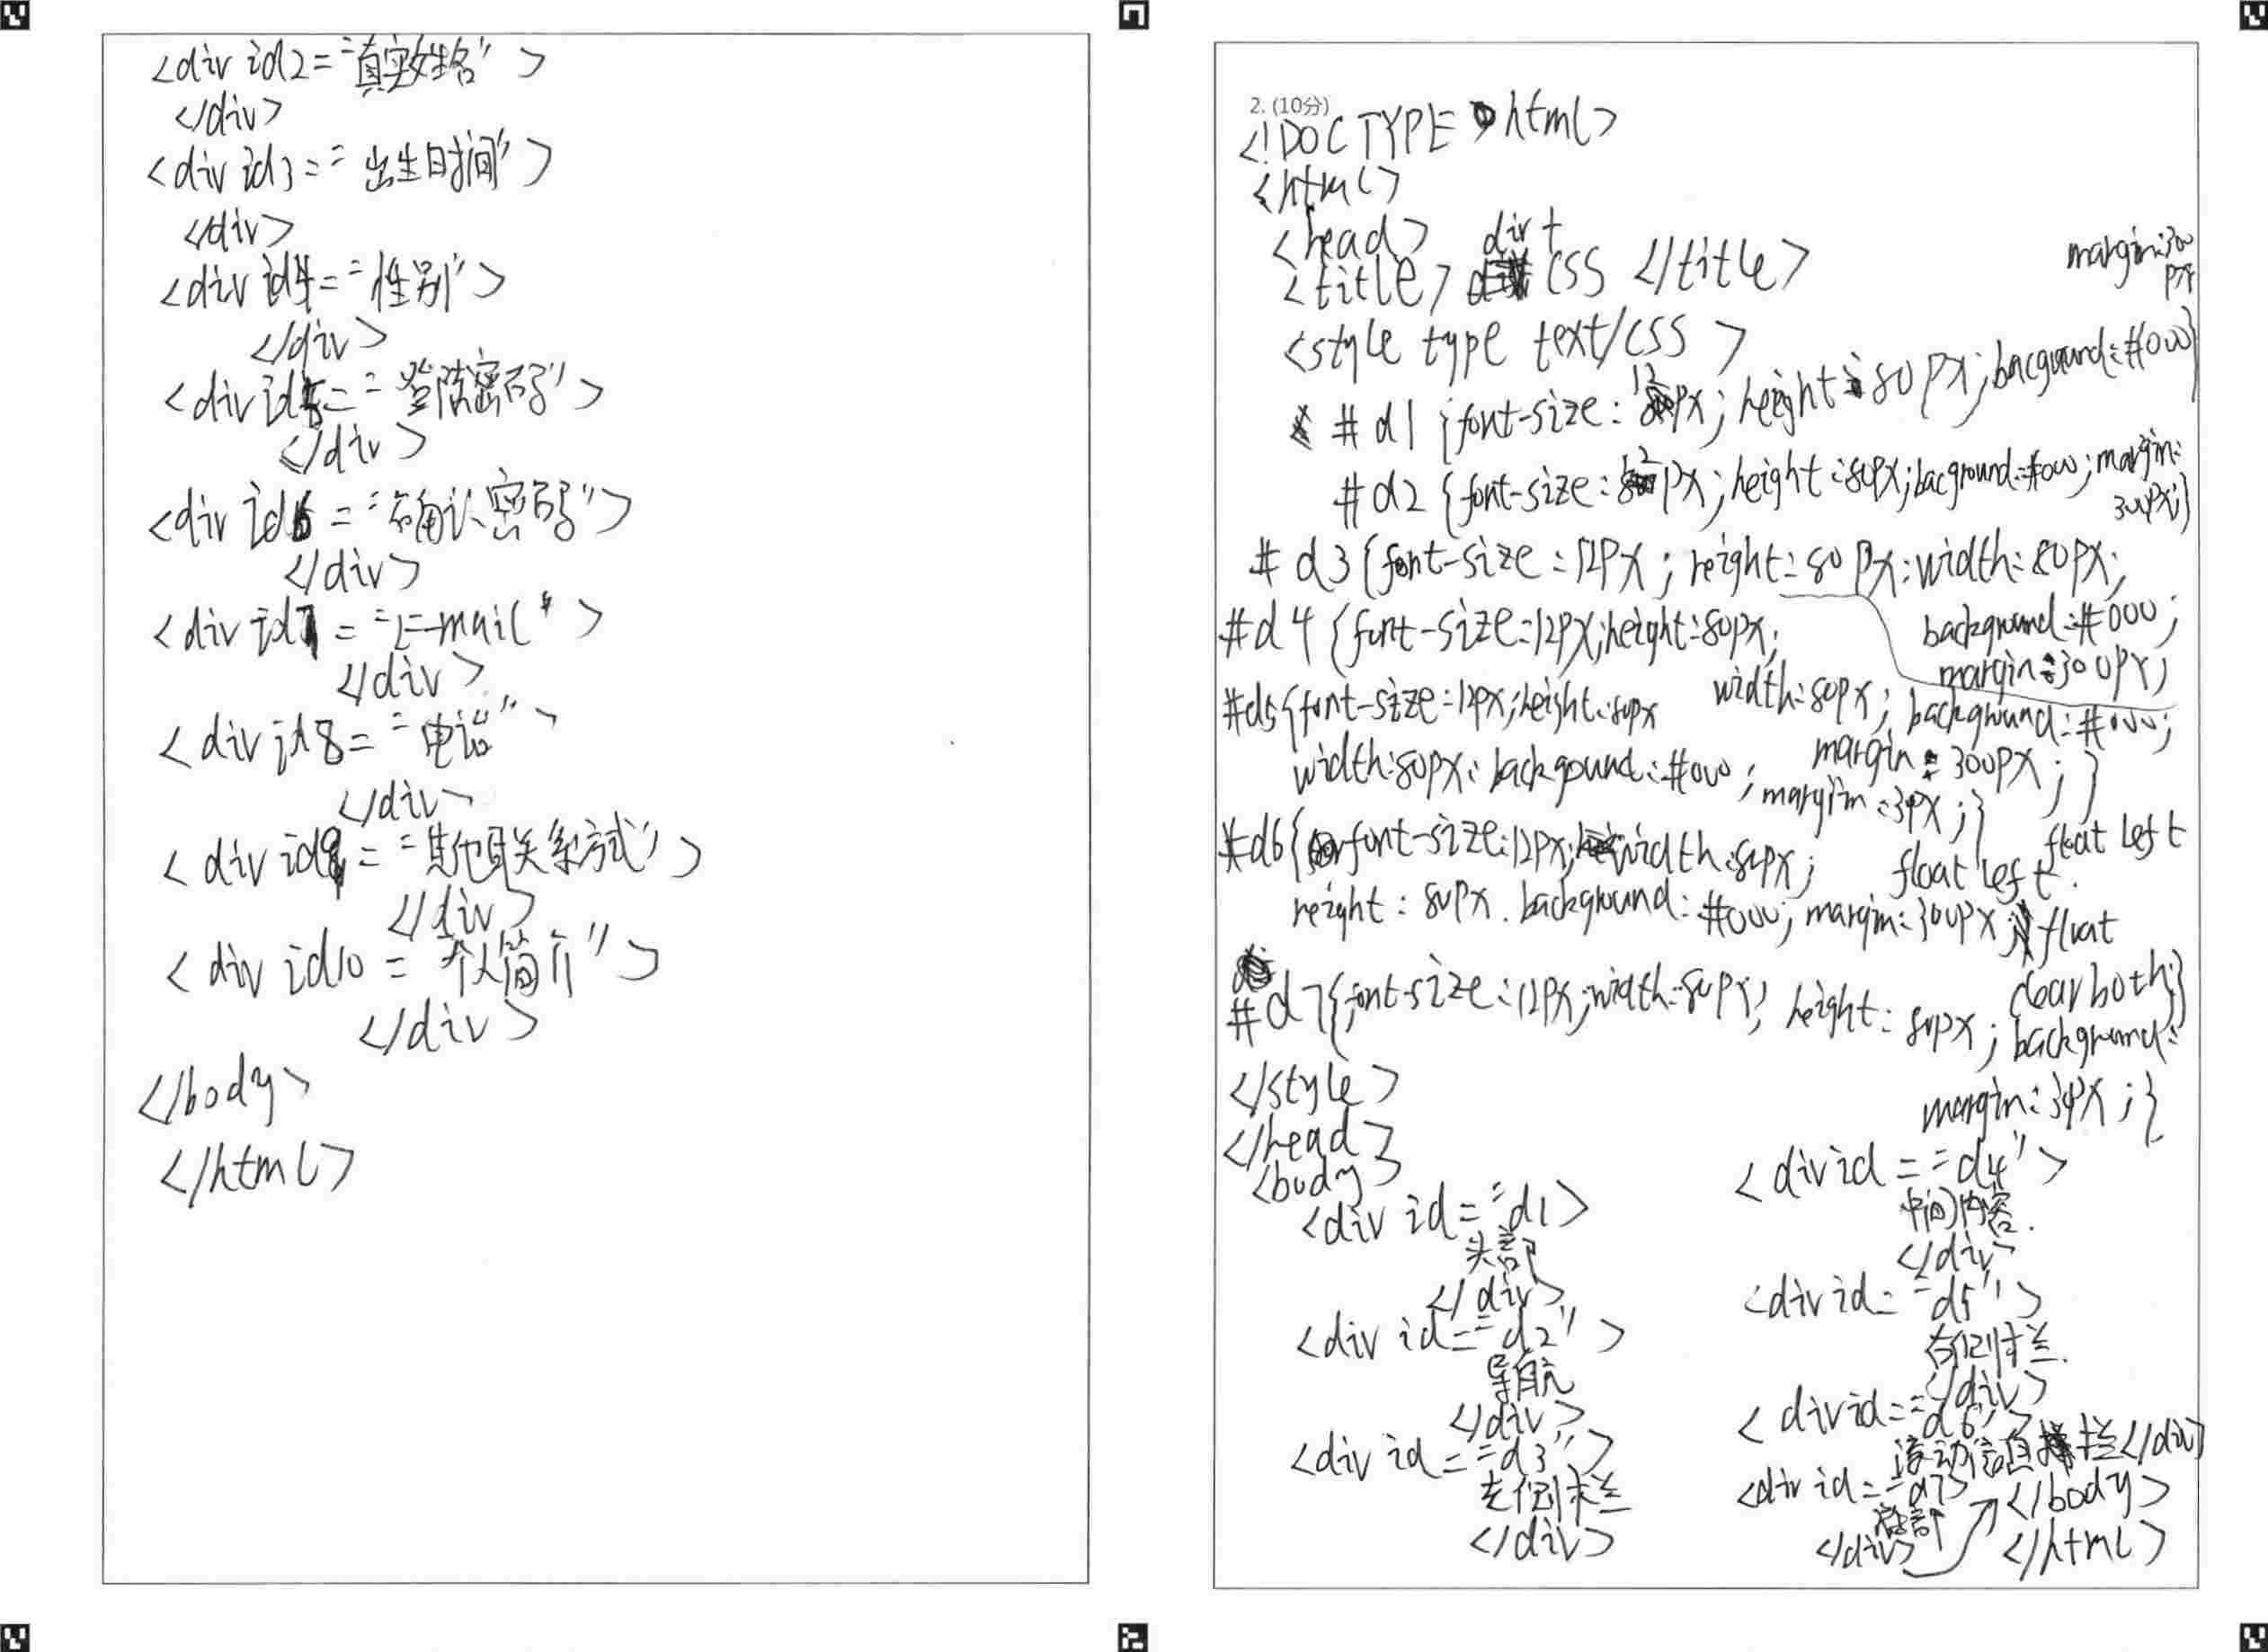 <div id2="真实姓名">
</div>
<div id3="出生时间">
</div>
<div id4="性别">
</div>
<div id5="登陆密码">
</div>
<div id6="确认密码">
</div>
<div id7="E-mail">
</div>
<div id8="电话">
</div>
<div id9="其他联系方式">
</div>
<div id10="个人简介">
</div>
</body>
</html>
2. (10分)
<!DOCTYPE html>
<html>
<head>
<title> div+ CSS </title>
<style type text/css >
#d1 {font-size:12px; height:80px; bacground:#000} margin:300px
#d2 {font-size:12px; height:80px; bacground:#000; margin:
300px;}
#d3 {font-size:12px; height:80px; width:80px;
background:#000;
margin:300px;
#d4 {font-size:12px; height:80px;
width:80px; background:#000;
margin:300px;}
float left
#d5{font-size:12px; height:80px
width:80px; background:#000; margin:34px;}
float left.
#d6{font-size:12px; width:80px;
height:80px. background:#000; margin:300px; float
clear both;}
#d7{font-size:12px; width:80px; height:80px; background:
margin:34px;}
</style>
</head>
<body>
<div id="d1>
头部
</div>
<div id="d2">
导航
</div>
<div id="d3">
左侧栏
</div>
<div id="d4">
中间内容.
</div>
<div id="d5">
右侧栏.
</div>
<div id="d6">
滚动信息栏</div>
<div id="d7>
底部
</div>
</body>
</html>